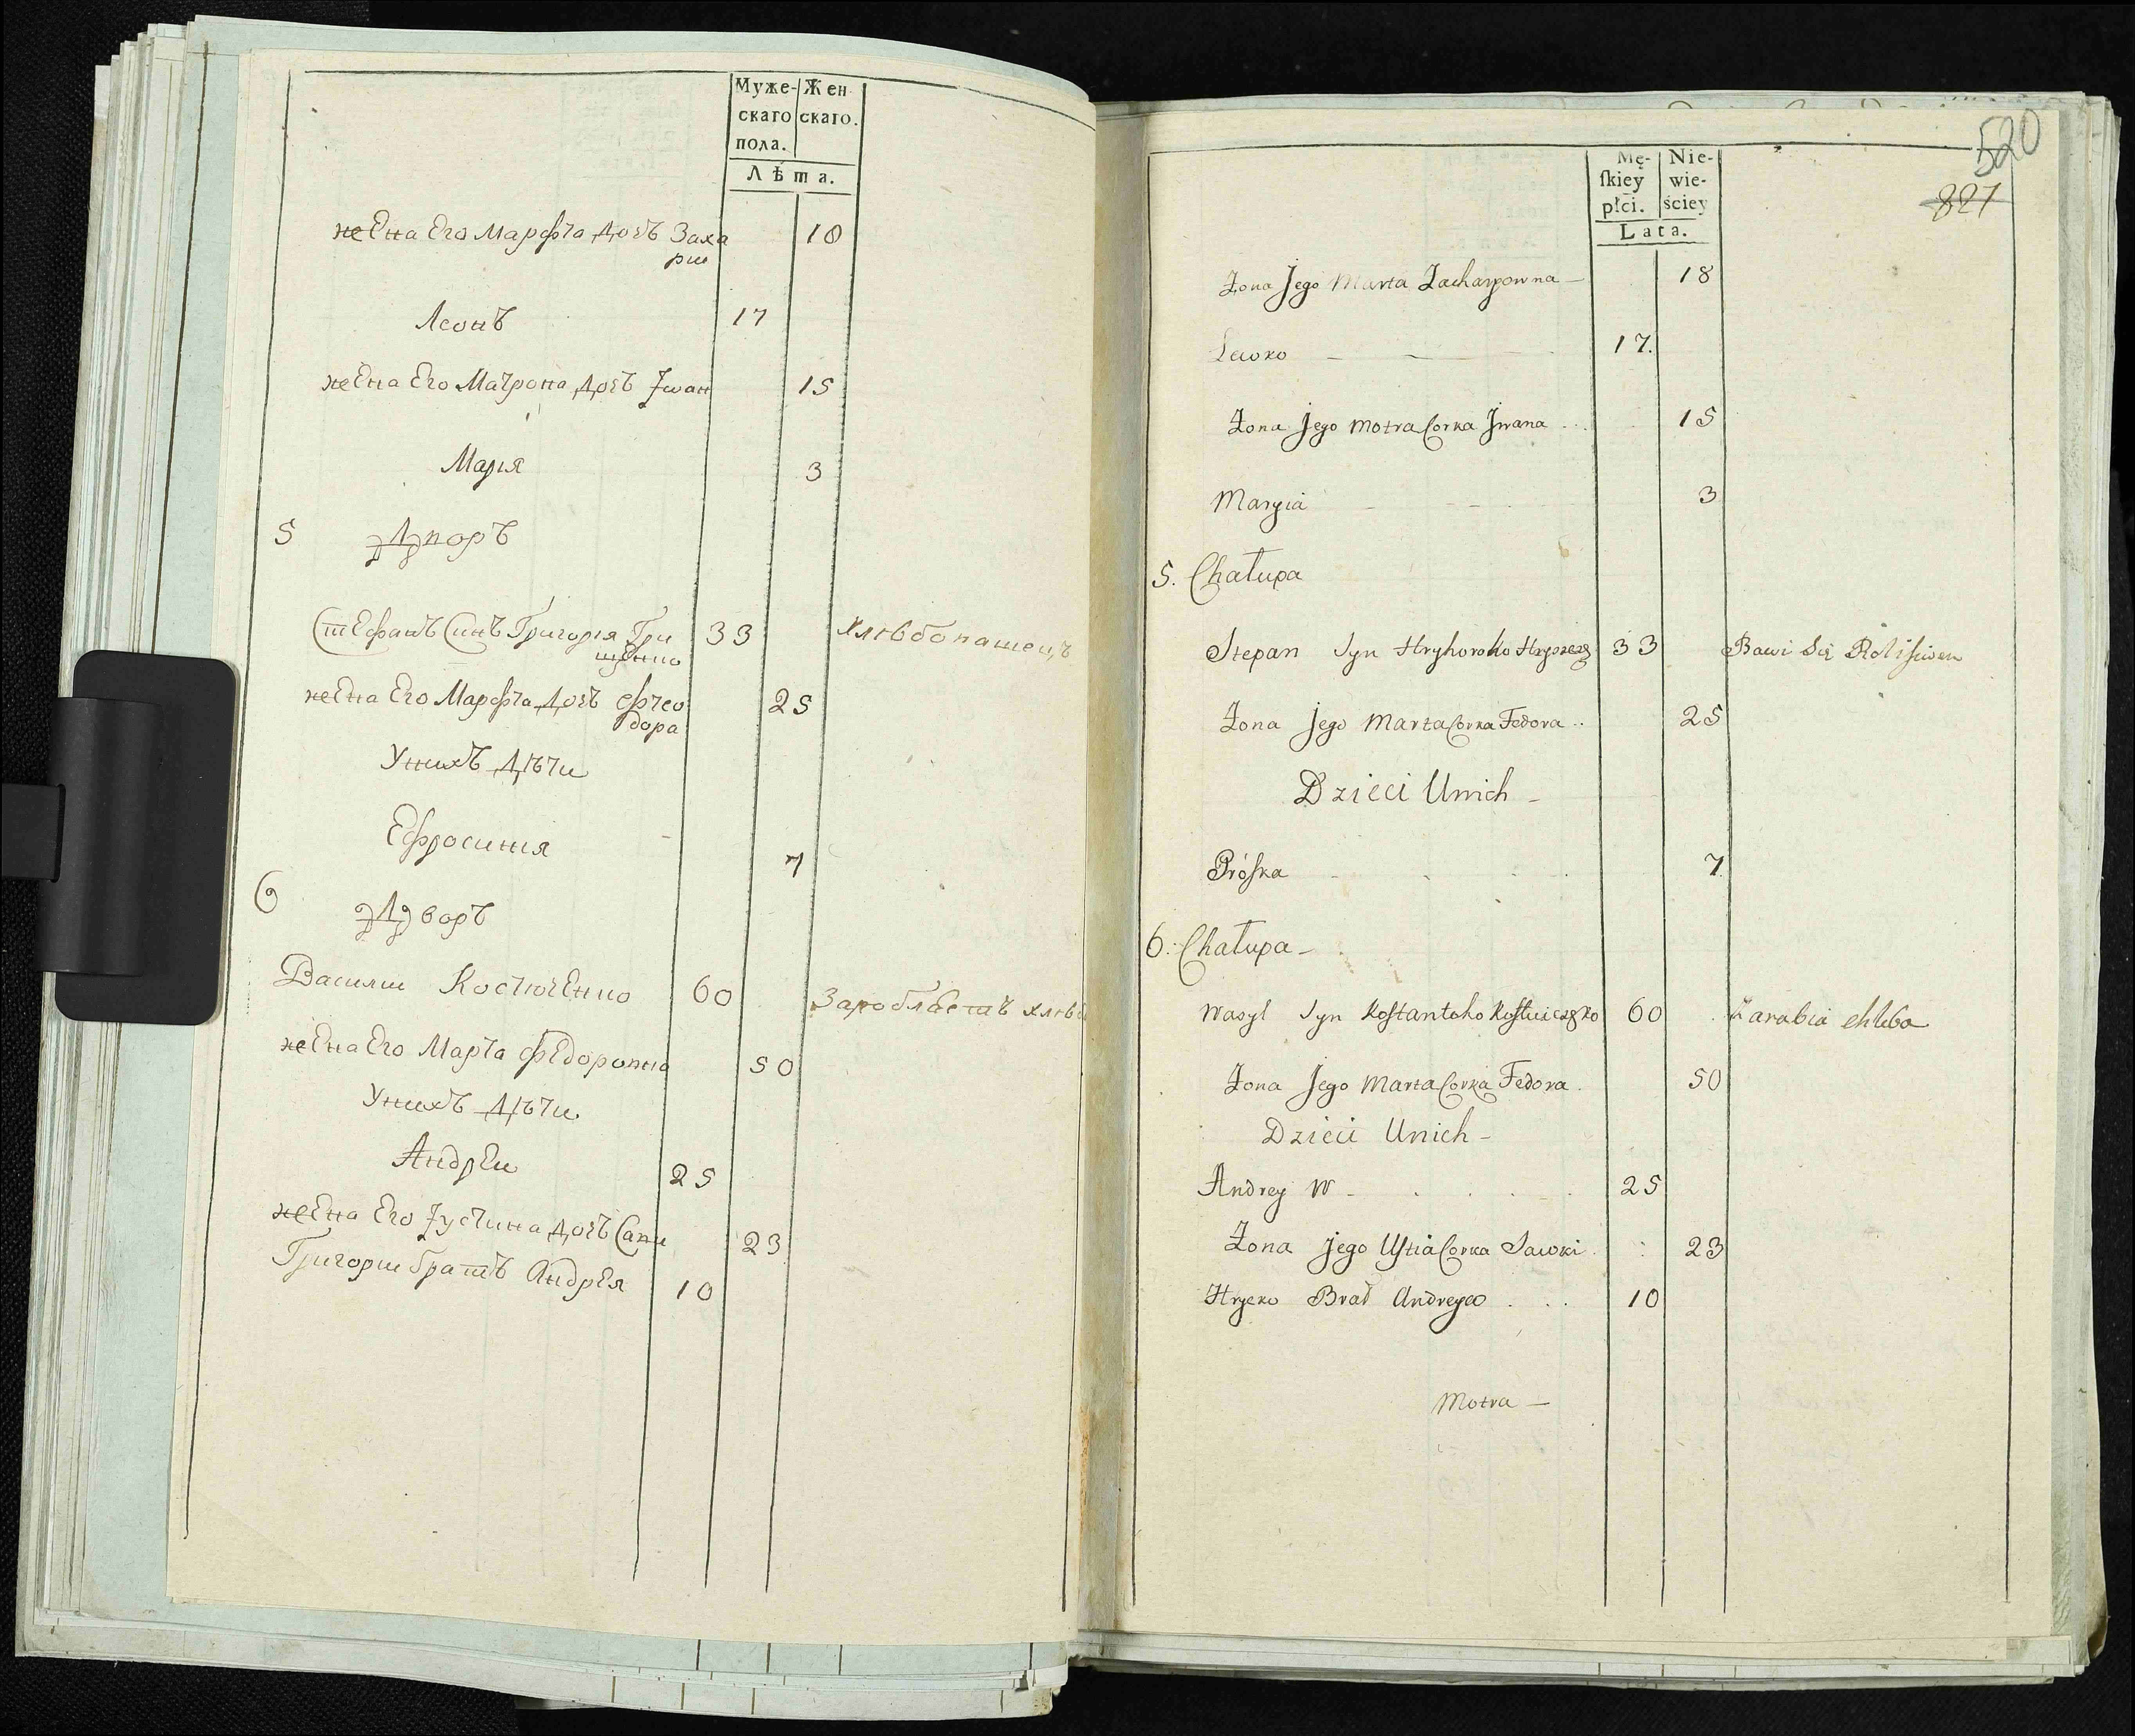 Муже- Жен
скаго скаго.
пола.
Лѣта.
жена Его Марфта дочъ Заха 18
рии
Леонъ 17
жена Его Матрона дочъ Iван 15
Марія 3
5 Дворъ
Стефанъ Синъ Григорія Гри 33 хлѣбопашецъ
щенко
жена Его Марфта дочъ Фтео 25
дора
Унихъ Дѣти
Ефросинія 7
6 Дворъ
Василии Костюченко 60 Зароблаетъ хлѣба
жена Его Марта Федоровна 50
Унихъ Дѣти
Андреи 25
жена Его Iустина дочъ Сави 23
Григории братъ Андрея 10
520
821
Mę- Nie-
ſkiey wie-
płci. ściey
Lata.
Żona Jego Marta Zacharyowna 18
Lewko 17.
Żona Jego Motra Corka Jwana 15
Maryia 3
5. Chałupa
Stepan Syn Hryhoroho 33 Bawi Się
Żona Jego Marta Corka Fedora 25
Dzieci Unich
Próſka 7
6. Chałupa
Wasyl Syn Koſtantoho 60 Zarabia chleba
Żona Jego Marta Corka Fedora 50
Dzieci Unich
Andrey W 25
Żona Jego Uſtia Corka Sawki 23
Hryćko Brat Andreya 10
Motra